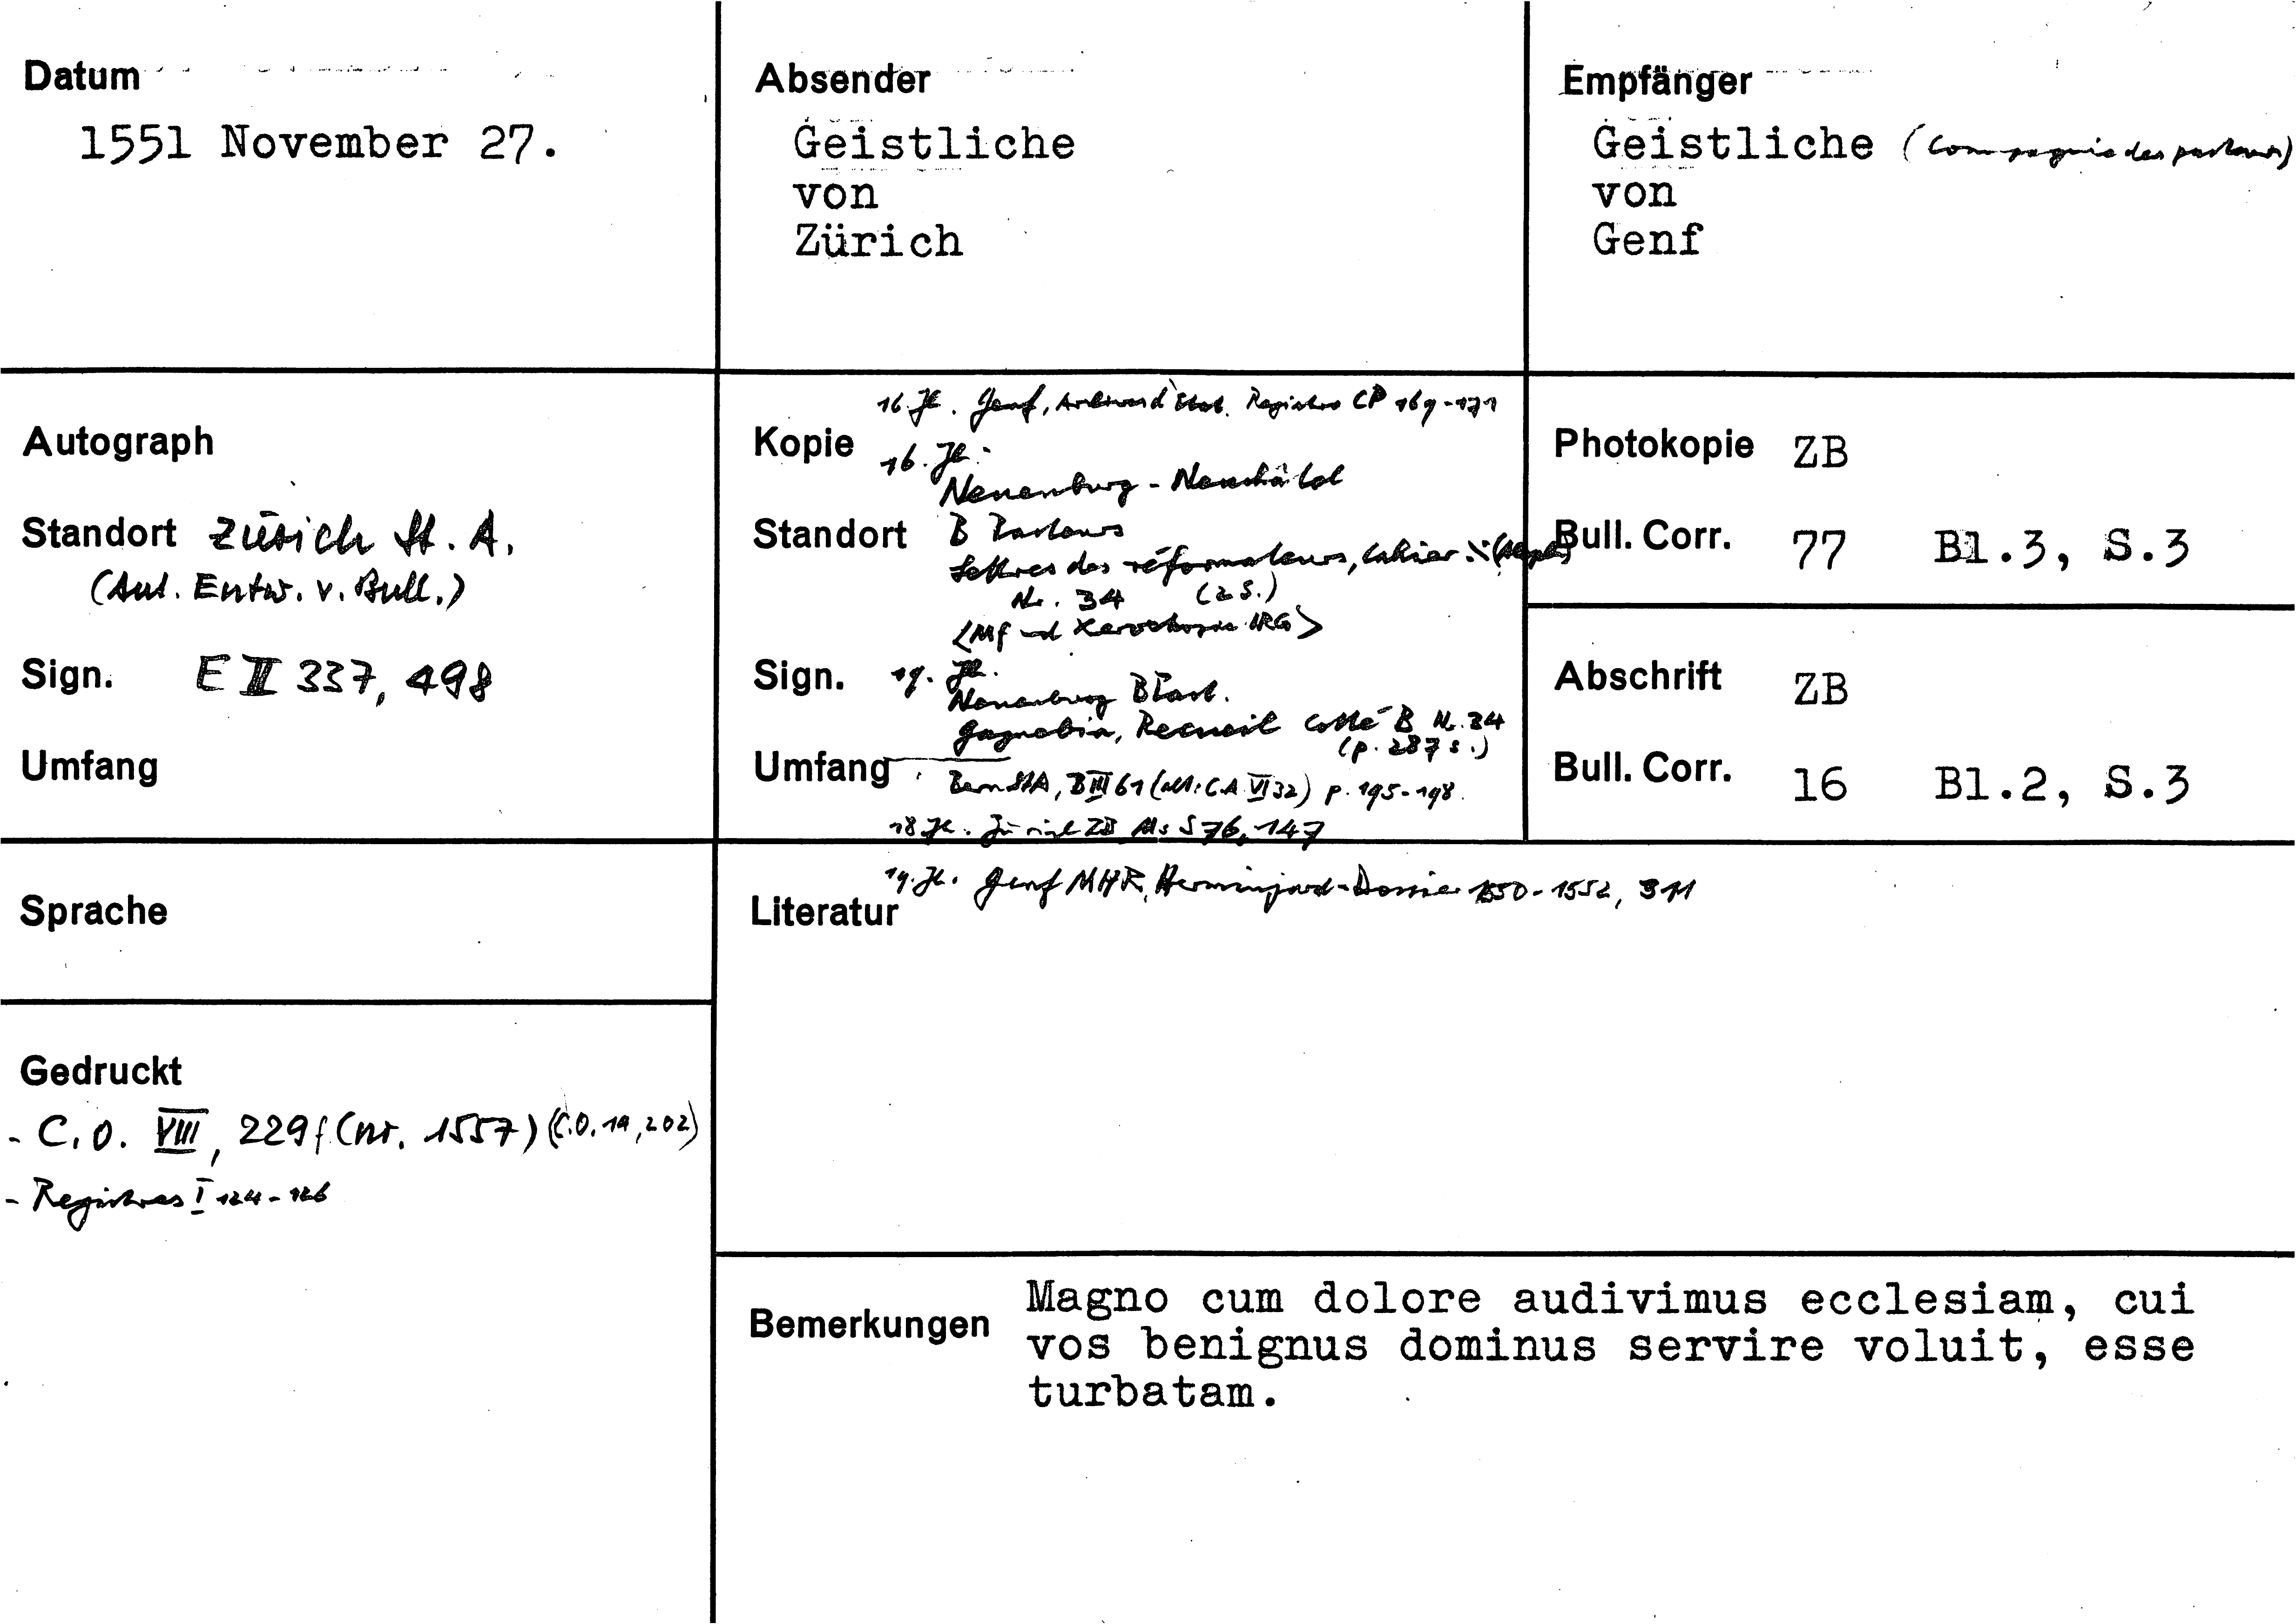 Datum
1551 November 27.
Absender
Geistliche
von
Zürich
Empfänger
Geistliche (Compagnie des pasteurs)
von
Genf
Autograph
Standort Zürich St. A.
(Aut. Entw. v. Bull.)
Sign. E II 337, 498
Umfang
16. Jh. Genf, Archives d'Etat. Registres CP 169-171
Kopie 16. Jh.
Neuenburg - Neuchâtel
Standort B Pasteurs
Lettres des réformateurs, cahier
Nr. 34 (2 S.)
<Mf und Xerokopie IRG>
Sign. 19. Jh.
Neuenburg BPast.
Gagnebin, Recueil cotté B Nr. 34
(p. 287 s.)
Umfang
Bern StA, B III 61 (alt: C.A. VI 32) p. 195-198.
18. Jh. Zürich ZB Ms S 76, 147
Photokopie ZB
Bull. Corr. 77 Bl.3, S.3
Abschrift ZB
Bull. Corr. 16 Bl.2, S.3
Sprache
19. Jh. Genf MHR, Herminjard-Dossier 1550-1552, 311
Literatur
Gedruckt
- C.O. VIII, 229f (nr. 1557) (C.O. 14, 202)
- Registres I 124-126
Bemerkungen
Magno cum dolore audivimus ecclesiam, cui
vos benignus dominus servire voluit, esse
turbatam.